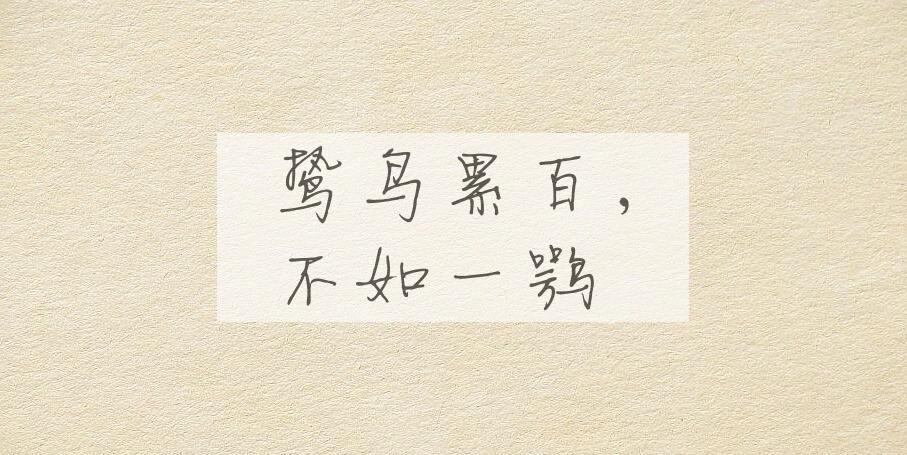 鸷鸟累百，
不如一鹗